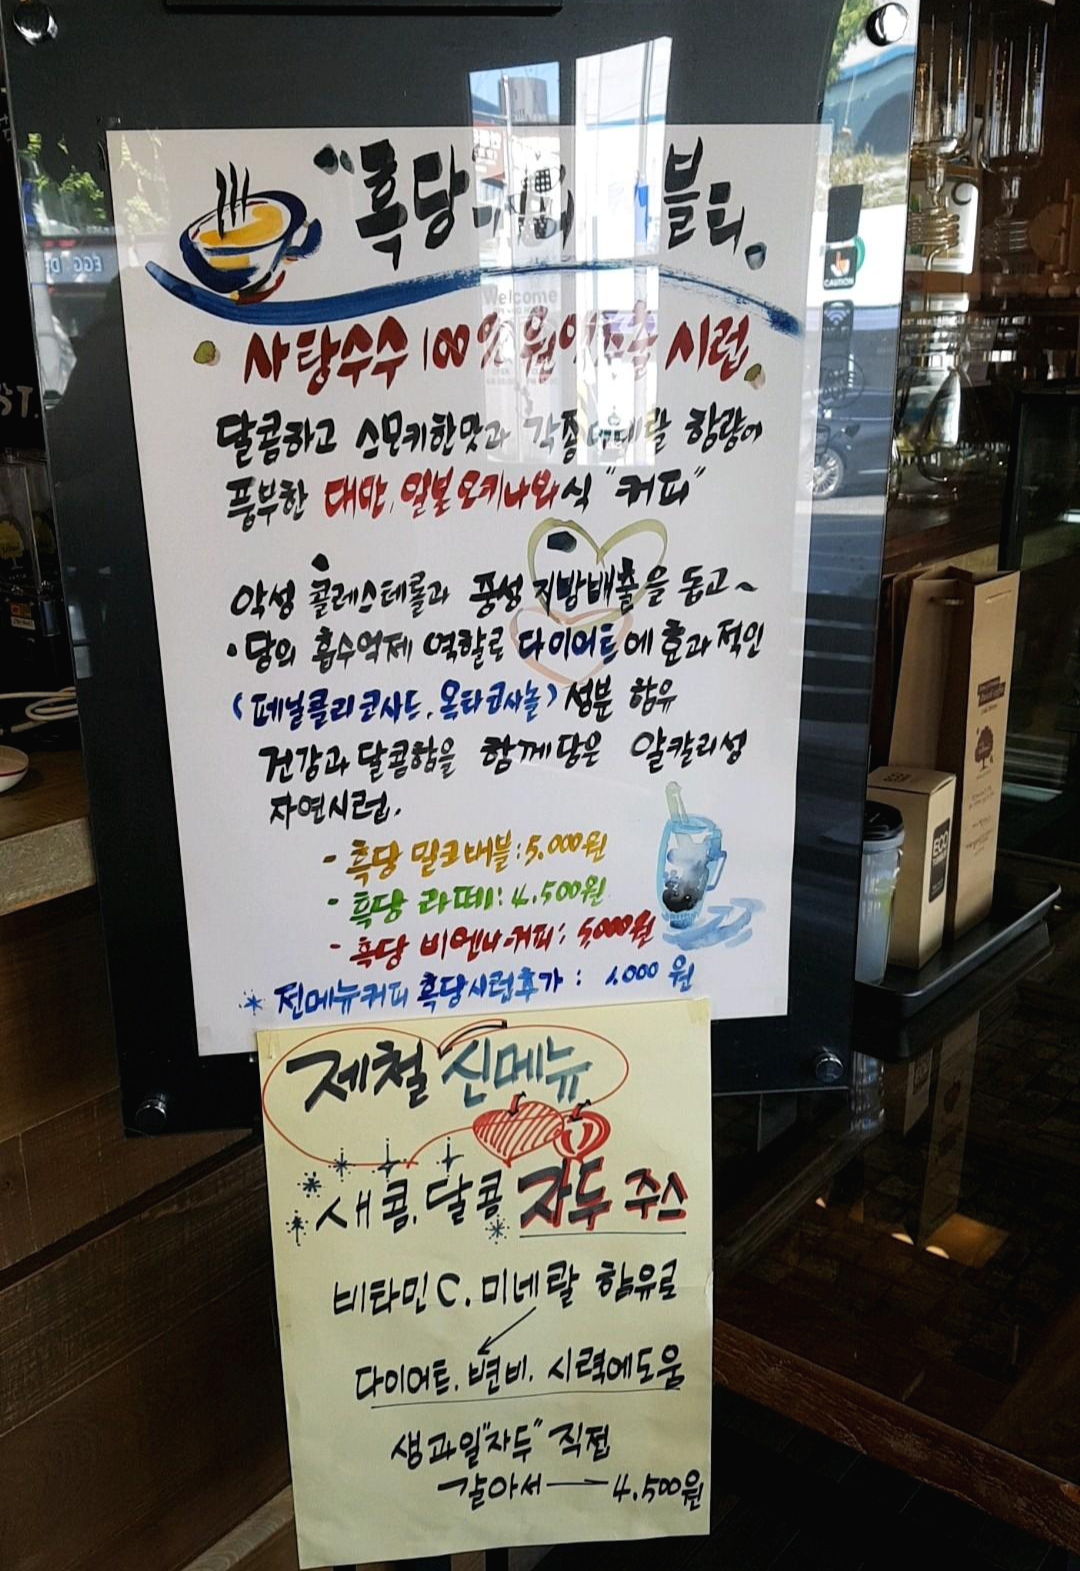 "흑당 블티
사탕수수 100% 시럽
달콤하고 스모키한맛과 각종 미네랄 함량이
풍부한 대만, 일본오키나와식 "커피"
악성 콜레스테롤과 중성지방배출을 돕고~
·당의 흡수억제 역할로 다이어트에 효과적인
(페닐클리코사드, 옥타코사놀) 성분 함유
건강과 달콤함을 함께담은 알칼리성
자연시럽.
- 흑당 밀크버블: 5.000원
- 흑당 라떼: 4.500원
- 흑당 비엔나커피: 5,000원
* 전메뉴커피 흑당시럽추가 : 1.000 원
제철 신메뉴
새콤, 달콤 자두 주스
비타민C, 미네랄 함유로
다이어트, 변비, 시력에도움
생과일"자두" 직접
갈아서 — 4.500원
Welcome
CAUTION
ECO
EGG